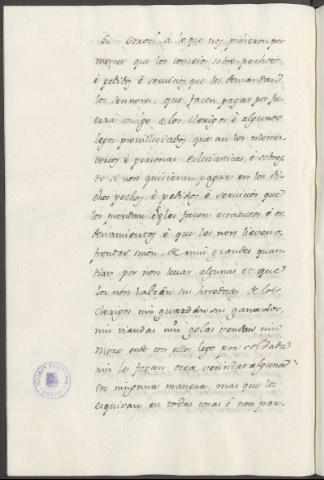 Et otrosi á lo que nos pidieron por
merçet que los conceios sobre pechos
é pedidos é serviçios que les demandan
los sennores, que facen pagar por fu
erza consigo a los clerigos é algunos
legos previllegiados que an los mones
terios é personas eclesiasticas, é sobre
si non quisieran pagar en los di
chos pechos é pedidos é serviçios que
los mandan é les facen estatutos é or
denamientos é que les non lieven
de mui grandes quan
tias por non levar algunas et que
los non valan sus heredades de los
clerigos nin guarden sus ganados,
nin viandas nin gelas vendan nin
more ende con ellos lego por soldada
nin les fagan otra vecindat alguna
en ninguna manera, mas que los
esquiven en todas cosas é non par-